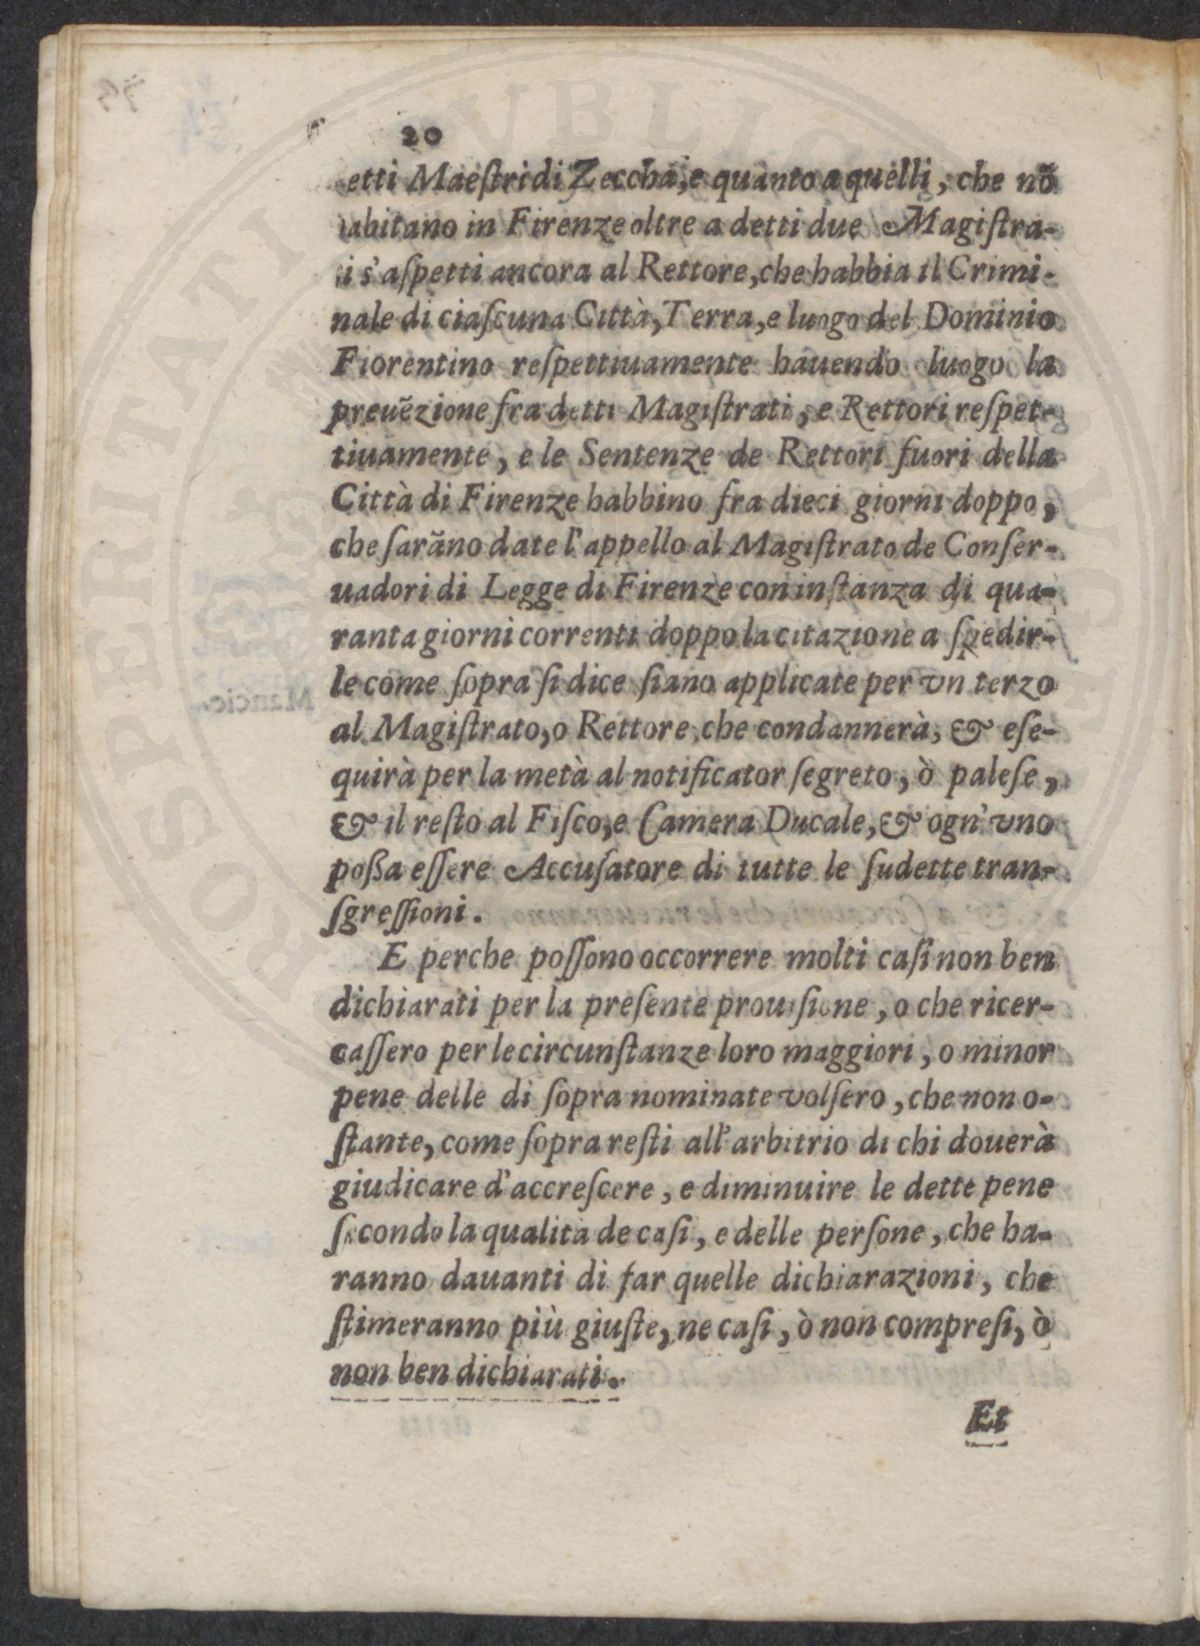 20
etti Maeſtri di Zeccha, e quanto a quelli, che nõ
abitano in Firenze oltre a detti due Magiſtra-
i s'aſpetti ancora al Rettore, che habbia il Crimi-
nale di ciaſcuna Città, Terra, e luogo del Dominio
Fiorentino reſpettiuamente hauendo luogo la
preuẽzione fra detti Magiſtrati, e Rettori reſpet-
tiuamente, e le Sentenze de Rettori fuori della
Città di Firenze habbino fra dieci giorni doppo,
che ſarãno date l'appello al Magiſtrato de Conſer-
uadori di Legge di Firenze con inſtanza di qua-
ranta giorni correnti doppo la citazione a ſpedir-
le come ſopra ſi dice ſiano applicate per vn terzo
al Magiſtrato, o Rettore, che condannerà, & eſe-
quirà per la metà al notificator ſegreto, ò paleſe,
& il reſto al Fiſco, e Camera Ducale, & ogn'vno
poßa eſſere Accuſatore di tutte le ſudette tran-
ſgreſſioni.
E perche poſſono occorrere molti caſi non ben
dichiarati per la preſente prouiſione, o che ricer-
caſſero per le circunſtanze loro maggiori, o minor
pene delle di ſopra nominate volſero, che non o-
ſtante, come ſopra reſti all'arbitrio di chi douerà
giudicare d'accreſcere, e diminuire le dette pene
ſecondo la qualità de caſi, e delle perſone, che ha-
ranno dauanti di far quelle dichiarazioni, che
ſtimeranno più giuſte, ne caſi, ò non compreſi, ò
non ben dichiarati.
Et